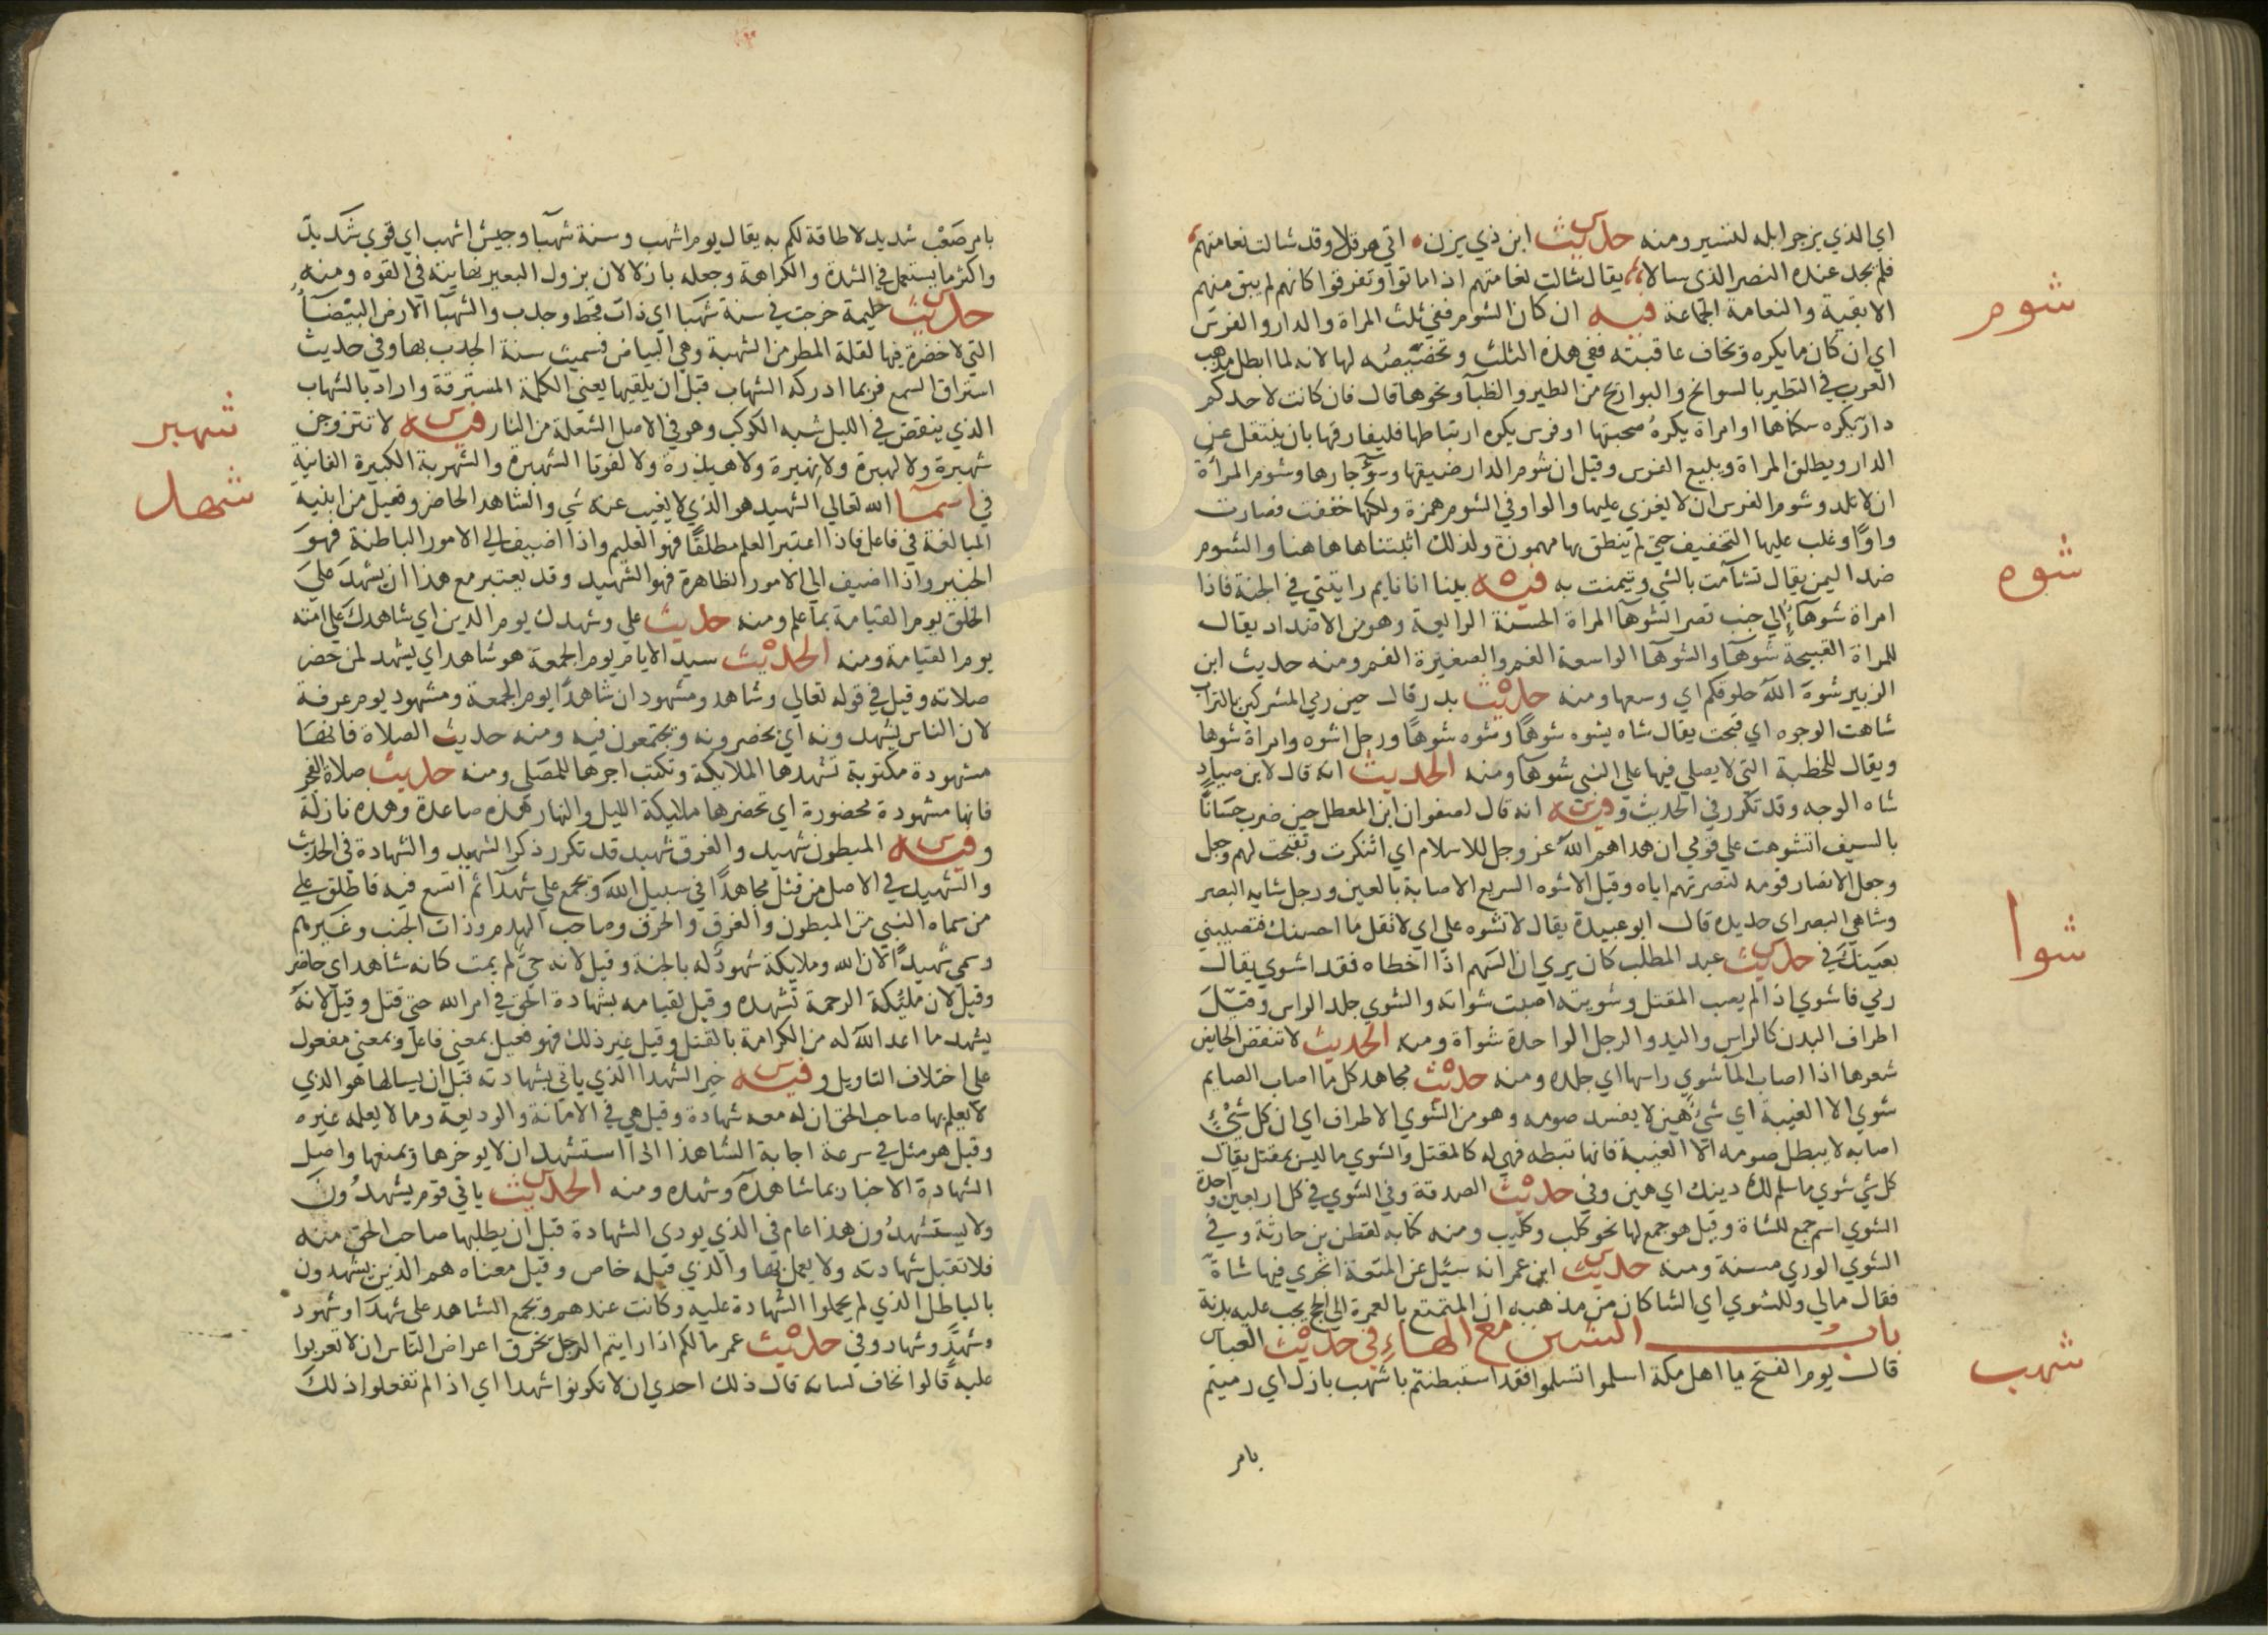 اي الذي يزجر ابله لتسير ومنه حديث ابن ذي يزن اتي هرقلا وقد شالت نعامتهم
فلم يجد عنده النصر الذي سالا يقال شالت نعامتهم اذا ماتوا وتفرقوا كانهم لم يبق منهم
الا بقية والنعامة الجماعة فيه ان كان الشوم ففي ثلث المراة والدار والفرس
شوم
اي ان كان ما يكره وتخاف عاقبته ففي هذه الثلث وتخصيصه لها لانه لما ابطل مذهب
العرب في التطير بالسوانح والبوارح من الطير والظبآ ونحوها قال فان كانت لاحدكم
دار يكره سكناها او امراة يكره صحبتها او فرس يكره ارتباطها فليفارقها بان ينتقل عن
الدار ويطلق المراة ويبيع الفرس وقيل ان شوم الدار ضيقها وسوٓ جارها وشوم المراة
ان لا تلد وشوم الفرس ان لا يغزي عليها والواو في الشوم همزة ولكنها خففت فصارت
واوًا وغلب عليها التخفيف حتي لم ينطق بها مهموزة ولذلك اثبتناها هاهنا والشوم
ضد اليمن يقال تشآمت بالشي وتيمنت به فيه بينا انا نايم رايتني في الجنة فاذا
شوه
امراة شوهآء الي جنب قصر الشوهآ المراة الحسنة الرايعة وهو من الاضداد يقال
للمراة القبيحة شوهآ والشوهآ الواسعة الفم والصغيرة الفم ومنه حديث ابن
الزبير شوه الله حلوقكم اي وسعها ومنه حديث بدر قال حين رمي المشركين بالتراب
شاهت الوجوه اي قبحت يقال شاه يشوه شوهًا وشوه شوهًا ورجل اشوه وامراة شوها
ويقال للخطبة التي لا يصلي فيها علي النبي شوهآ ومنه الحديث انه قال لابن صياد
شاه الوجه وقد تكرر في الحديث وفيه انه قال لصفوان ابن المعطل حين ضرب حسانًا
بالسيف اتشوهت علي قومي ان هداهم الله عز وجل للاسلام اي اتنكرت وتقبحت لهم وجعل
وجعل الانصار قومه لنصرتهم اياه وقيل الاشوه السريع الاصابة بالعين ورجل شايه البصر
وشاهي البصر اي حديده قال ابو عبيدة يقال لا تشوه علي اي لا تقل ما احسنك فتصيبني
بعينك في حديث عبد المطلب كان يري ان السهم اذا اخطاه فقد اشوي يقال
شوا
رمي فاشوي اذا لم يصب المقتل وشويته اصبت شواته والشوي جلد الراس وقيل
اطراف البدن كالراس واليد والرجل الواحدة شواة ومنه الحديث لا تنقض الحايض
شعرها اذا اصاب المآ شوي راسها اي جلده ومنه حديث مجاهد كل ما اصاب الصايم
شوي الا الغيبة اي شي هين لا يفسد صومه وهو من الشوي الاطراف اي ان كل شيء
اصابه لا يبطل صومه الا الغيبة فانها تبطه فهي له كالمقتل والشوي ما ليس بمقتل يقال
كل شي شوي ما سلم لك دينك اي هين وفي حديث الصدقة وفي الشوي في كل اربعين واحدة
الشوي اسم جمع للشاة وقيل هو جمع لها نحو كلب وكليب ومنه كتابه لقطن بن حارثة وفي
الشوي الوري مسنة ومنه حديث ابن عمر انه سيل عن المتعة اتجزي فيها شاة
فقال مالي وللشوي اي الشا كان من مذهبه ان المتمتع بالعمرة الي الحج يجب عليه بدنة
باب الشين مع الهاء في حديث العباس
قال يوم الفتح يا اهل مكة اسلموا تسلموا فقد استبطنتم باشهب بازل اي رميتم
شهب
بامر
بامر صعب شديد لا طاقة لكم به يقال يوم اشهب وسنة شهبآ وجيش اشهب اي قوي شديد
واكثر ما يستعمل في الشدة والكراهة وجعله بازلا لان بزول البعير نهايته في القوه ومنه
حديث حليمة خرجت في سنة شهبا اي ذات قحط وجدب والشهبآ الارض البيضآء
التي لا خضرة فيها لقلة المطر من الشهبة وهي البياض فسميت سنة الجدب بها وفي حديث
استراق السمع فربما ادركه الشهاب قبل ان يلقيها يعني الكلمة المسترقة واراد بالشهاب
الذي ينقض في الليل شبه الكوكب وهو في الاصل الشعلة من النار فيه لا تتزوجن
شهبر
شهبرة ولا لهبرة ولا نهبرة ولا هيذرة ولا لفوتا الشهبرة والشهربة الكبيرة الفانية
شهد
في اسمآ الله تعالي الشهيد هو الذي لا يغيب عنه شي والشاهد الحاضر وفعيل من ابنيه
المبالغة في فاعل فاذا اعتبر العلم مطلقًا فهو العليم واذا اضيف الي الامور الباطنة فهو
الخبير واذا اضيف الي الامور الظاهرة فهو الشهيد وقد يعتبر مع هذا ان يشهد علي
الخلق يوم القيامة بما علم ومنه حديث علي وشهدك يوم الدين اي شاهدك علي امته
يوم القيامة ومنه الحديث سيد الايام يوم الجمعة هو شاهد اي يشهد لمن حضر
صلاته وقيل في قوله تعالي وشاهد ومشهود ان شاهدًا يوم الجمعة ومشهود يوم عرفة
لان الناس يشهدونه اي يحضرونه ويجتمعون فيه ومنه حديث الصلاة فانها
مشهودة مكتوبة تشهدها الملايكة وتكتب اجرها للمصلي ومنه حديث صلاة الفجر
فانها مشهودة محضورة اي تحضرها ملايكة الليل والنهار هذه صاعدة وهذه نازلة
وفيه المبطون شهيد والغرق شهيد قد تكرر ذكر الشهيد والشهادة في الحديث
والشهيد في الاصل من قتل مجاهدًا في سبيل الله ويجمع علي شهدآ ثم اتسع فيه فاطلق علي
من سماه النبي من المبطون والغرق والحرق وصاحب الهدم وذات الجنب وغيرهم
وسمي شهيدًا لان الله وملايكة شهود له بالجنة وقيل لانه حي لم يمت كانه شاهد اي حاضر
وقيل لان مليكة الرحمة تشهده وقيل لقيامه بشهادة الحق في امر الله حتي قتل وقيل لانه
يشهد ما اعد الله له من الكرامة بالقتل وقيل غير ذلك فهو فعيل بمعني فاعل وبمعني مفعول
علي اختلاف التاويل وفيه خير الشهدا الذي ياتي بشهادته قبل ان يسالها هو الذي
لا يعلم بها صاحب الحق ان له معه شهادة وقيل هي في الامانة والوديعة وما لا يعلمه غيره
وقيل هو مثل في سرعة اجابة الشاهد اذا استشهد ان لا يوخرها ويمنعها واصل
الشهادة الاخبار بما شاهده وشهده ومنه الحديث ياتي قوم يشهدون
ولا يستشهدون هذا عام في الذي يودي الشهادة قبل ان يطلبها صاحب الحق منه
فلا تقبل شهادته ولا يعمل بها والذي قبله خاص وقيل معناه هم الذين يشهدون
بالباطل الذي لم يحملوا الشهادة عليه وكانت عندهم ويجمع الشاهد علي شهدا وشهود
وشهد وشهاد وفي حديث عمر مالكم اذا رايتم الرجل يخرق اعراض الناس ان لا تعربوا
عليه قالوا نخاف لسانه قال ذلك احدي ان لا تكونوا شهدا اي اذا لم تفعلوا ذلك